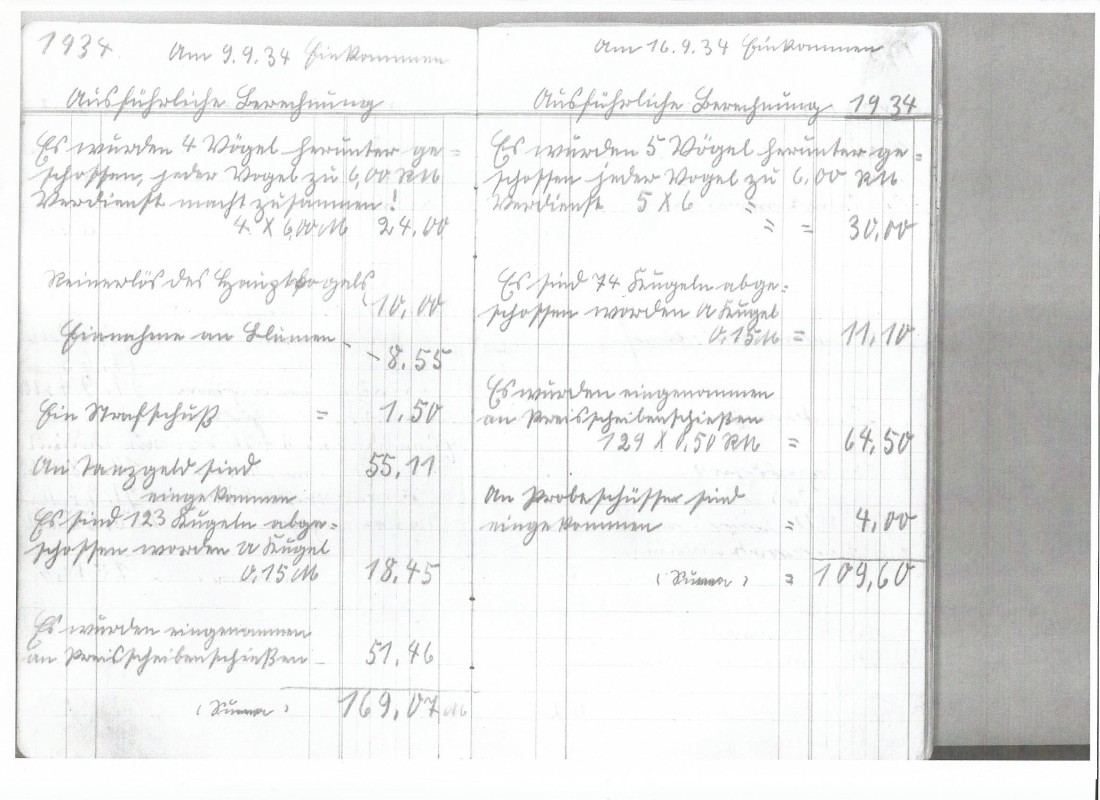 1934. Am 9.9.34 Einkommen
Ausführliche Berechnung
Es wurden 4 Vögel herunter ge=
schossen, jeder Vogel zu 6,00 RM
Verdienst macht zusammen!
4 X 6,00 M 24.00
Reinerlös des Hauptvogels
10.00
Einnahme an Blumen -
- 8.55
Ein Strafschuß = 1.50
An Tanzgeld sind 55.11
eingekommen
Es sind 123 Kugeln abge=
schossen worden a Kugel
0,15 M 18.45
Es wurden eingenommen
an Preisscheibenschießen - 51.46
(Summa) 169.07 M
Am 16.9.34 Einkommen
Ausführliche Berechnung 1934
Es wurden 5 Vögel herunter ge=
schossen jeder Vogel zu 6.00 RM
Verdienst 5 X 6 "
" = 30.00
Es sind 74 Kugeln abge=
schossen worden a Kugel
0,15 M = 11,10
Es wurden eingenommen
an Preisscheibenschießen
129 X 0,50 RM = 64,50
An Probeschüsse sind
eingekommen = 4.00
(Summa) = 109,60